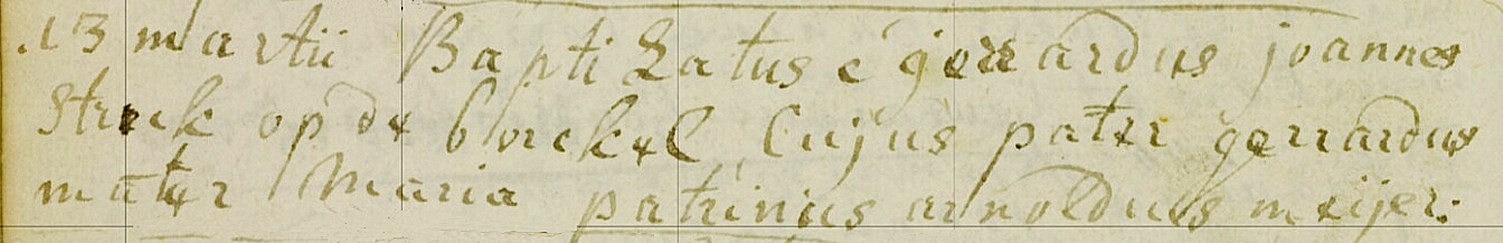 .13 martii Baptizatus é gerrardus joannes
Strick op de borckel Cujus pater gerrardus
mater Maria patrinus arnoldus meijer: